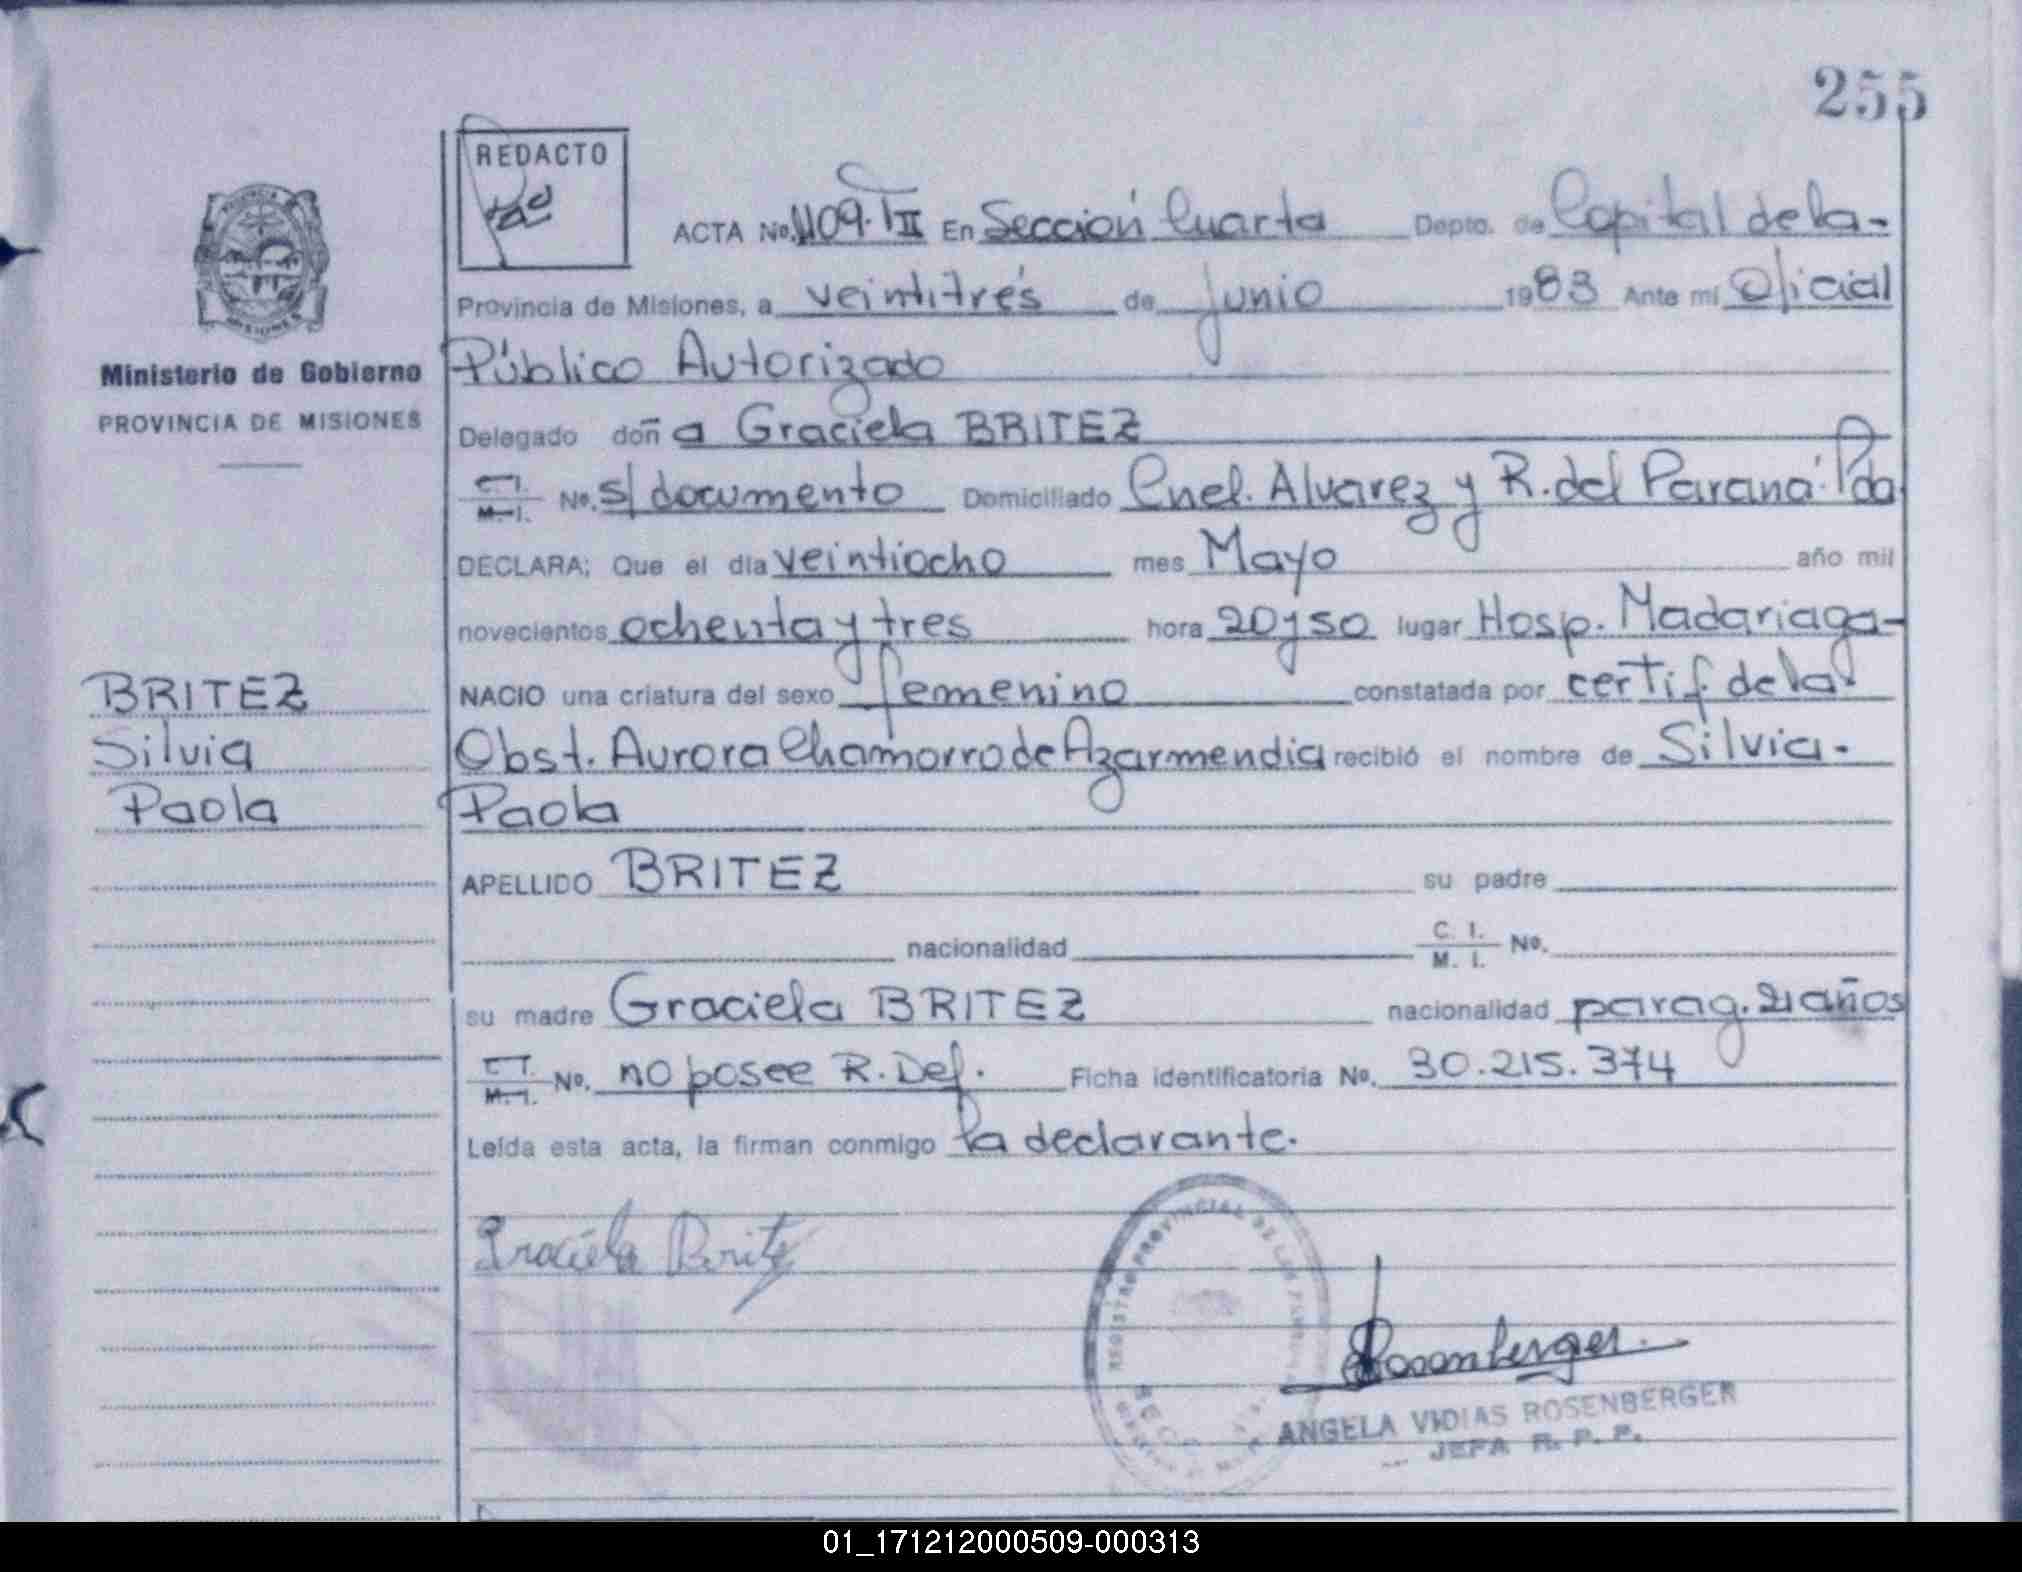 255
REDACTO
ACTA No. 1109. TII En Sección Cuarta Depto. de Capital de la-
Provincia de Misiones, a veintitrés de junio 1983 Ante mí Oficial
Ministerio de Gobierno
Público Autorizado
PROVINCIA DE MISIONES
Delegado doña Graciela BRITEZ
C.I. M.I. No. s/documento Domiciliado Cnel. Alvarez y R. del Paraná. Pda
DECLARA: Que el día veintiocho mes Mayo año mil
novecientos ochenta y tres hora 20y50 lugar Hosp. Madariaga-
BRITEZ
NACIO una criatura del sexo femenino constatada por certif. de la
Silvia
Obst. Aurora Chamorro de Azarmendia recibió el nombre de Silvia-
Paola
Paola
APELLIDO BRITEZ su padre
nacionalidad C. I. M. I. No.
su madre Graciela BRITEZ nacionalidad parag. 21 años
C.I. M.I. No. no posee R. Def. Ficha identificatoria No. 30.215.374
Leída esta acta, la firman conmigo la declarante.
Graciela Britez
REGISTRO PROVINCIAL DE LAS
Rosenberger.
ANGELA VIDIAS ROSENBERGER
JEFA R. P. P.
01_171212000509-000313